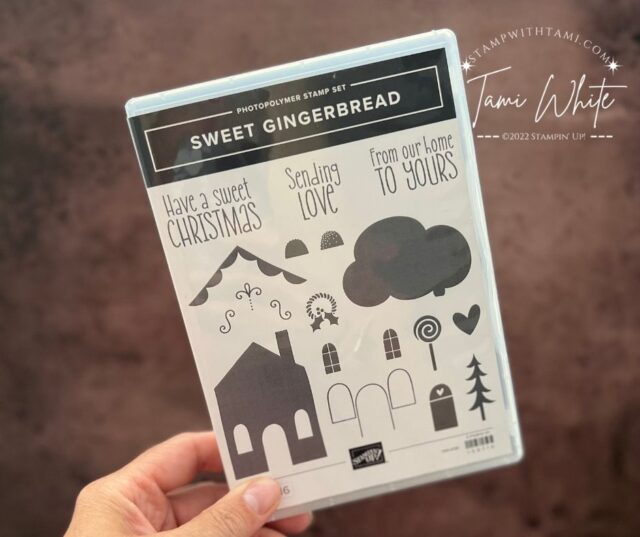 STAMPWITHTAMI.COM
Tami White
©2022 STAMPIN' UP!
PHOTOPOLYMER STAMP SET
SWEET GINGERBREAD
Have a sweet
CHRISTMAS
Sending
LOVE
From our home
TO YOURS
STAMPIN' UP!
16